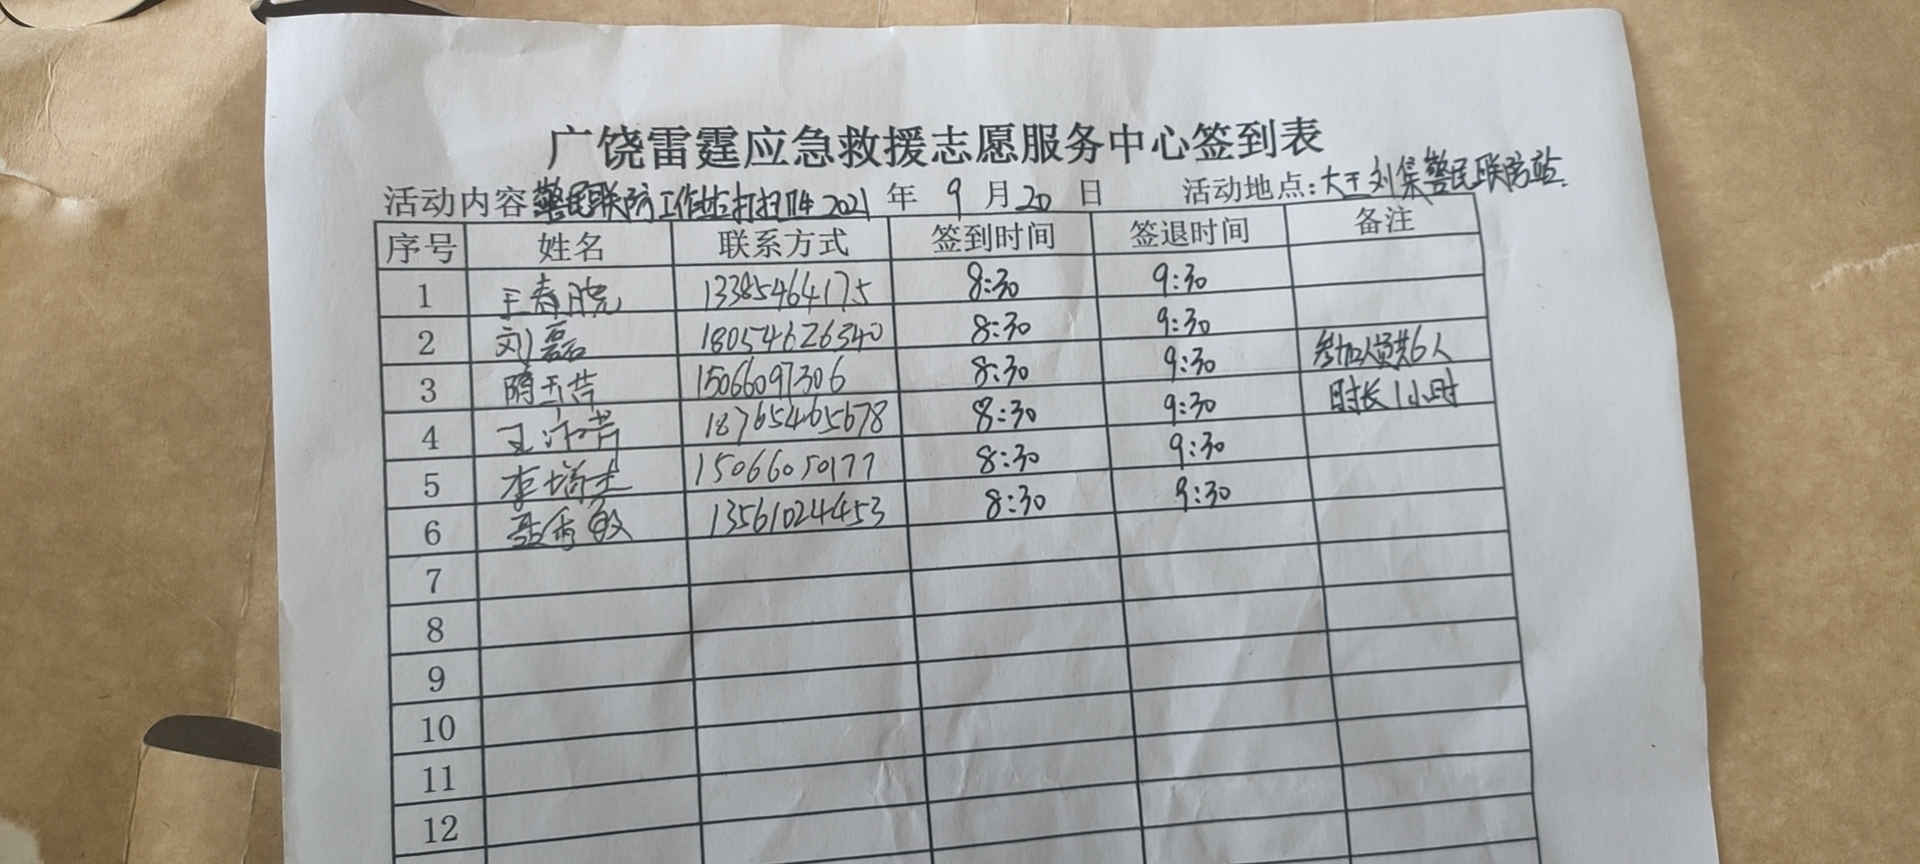 广饶雷霆应急救援志愿服务中心签到表
活动内容 警民联防工作站打扫卫生 2021 年 9 月 20 日 活动地点:大王刘集警民联防站.
序号 姓名 联系方式 签到时间 签退时间 备注
1 王春晓 13385464175 8:30 9:30
2 刘磊 18054626340 8:30 9:30
3 隋玉芹 15066097306 8:30 9:30 参加人员共6人
4 18765465678 8:30 9:30 时长1小时
5 15066050177 8:30 9:30
6 13561024453 8:30 9:30
7
8
9
10
11
12